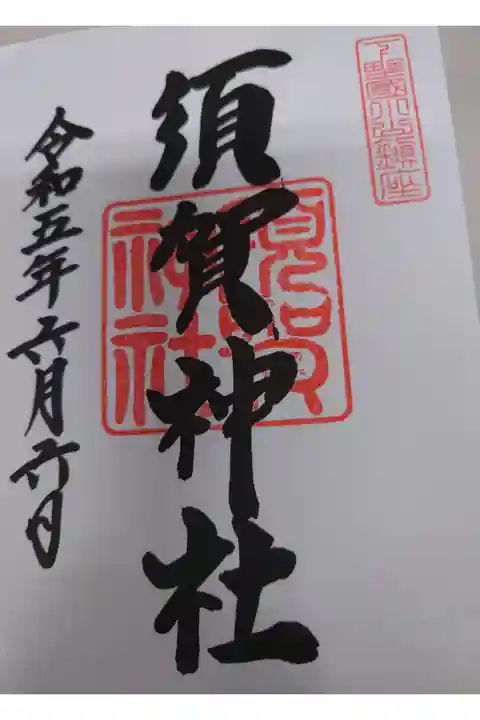 下野國小山鎮座
須賀神社
須賀神社
令和五年六月六日